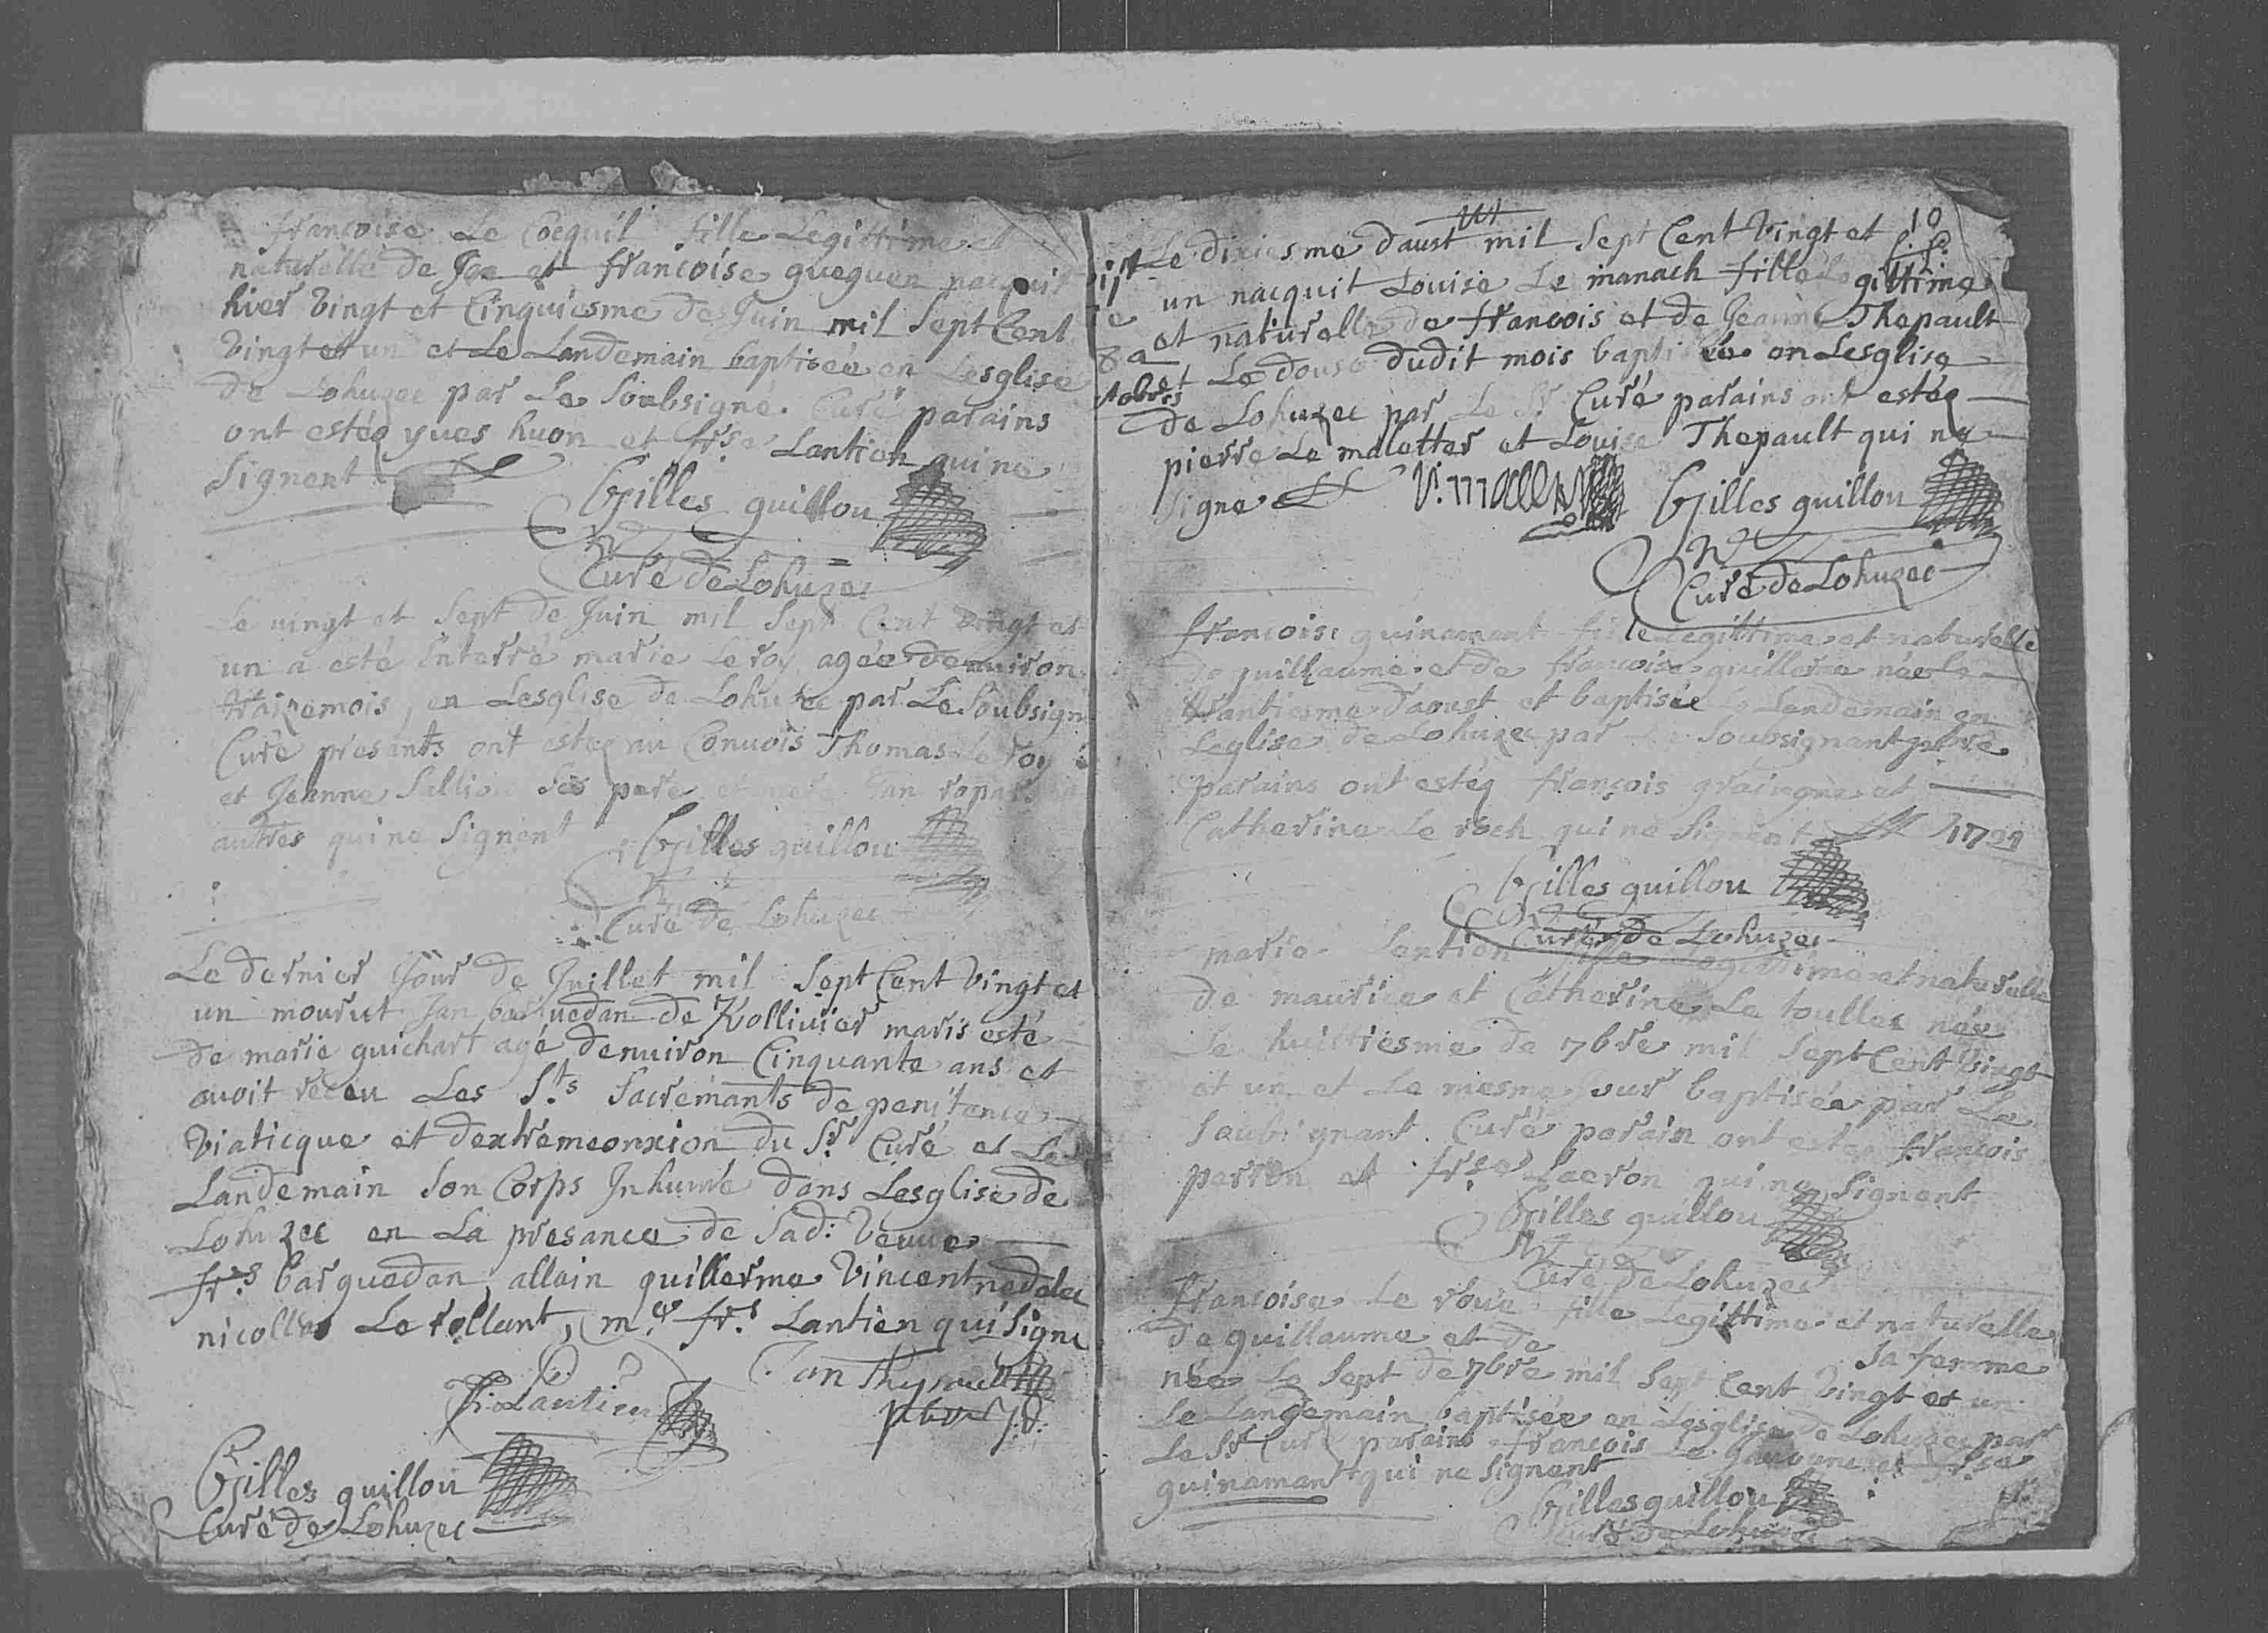 francoise Le Cocquil fille Legittime et
naturelle de Jan et francoise gueguen nacquit
hier vingt et Cinquiesme de Juin mil Sept Cent
vingt et un et Le Landemain baptisée en Lesglise
de Lohuzec par Le Soubsigné Curé parains
ont estéz yves huon et frse Lantien qui ne
signent
Gilles guillou
Curé de Lohuzec
Le vingt et Sept de Juin mil Sept Cent vingt et
un a esté Interré marie Le roy agée denuiron
traizemois, en Lesglise de Lohuzec par Le Soubsigné
Curé presants ont estez au Conuois Thomas Le roy
et Jeanne Sillio Ses pere et mere Jan
autres qui ne Signent
Gilles guillou
Curé de Lohuzec
Le dernier Jour de Juillet mil Sept Cent vingt et
un mourut Jan barguedan de Kollivier maris esté
de marie guichart agé denuiron Cinquante ans et
auoit receu Les Sts Sacremants de penitence
viaticque et dextrémeonxion du Sr Curé et Le
Landemain Son Corps Inhumé dans Lesglise de
Lohuzec en La presance de Sad: veuue
frs barguedan, allain guillerme vincent nedelec
nicollas Le rollant, me frs Lantien qui Signe
F: Lantien
Jan
Gilles guillou
Curé de Lohuzec
10
Le dixiesme daust mil Sept Cent vingt et
un nacquit Louise Le manach fille Legittime
et naturelle de francois et de Jeanne Thepault
et Le douse dudit mois baptisée en Lesglise
de Lohuzec par Le Sr Curé parains ont estéz
pierre Le maletter et Louise Thepault qui ne
signe
Gilles guillou
Curé de Lohuzec
francoise guinamant fille Legittime et naturelle
de guillaume et de francoise guillerme née le
trantiesme daoust et baptisée le Lendemain en
Leglise de Lohuzec par Le Soubsignant
parains ont estéz françois et
Catherine Le roch qui ne Signent
Gilles guillou
Curé de Lohuzec
marie Lantion fille Legittime et naturelle
de maurice et Catherine Le toullec née
Le huictiesme de 7bre mil Sept Cent vingt
et un et Le mesme Jour baptisée par Le
Soubsignant Curé parain ont estez francois
perron et frse Lacron qui ne Signent
Gilles guillou
Curé de Lohuzec
francoise Le roue fille Legittime et naturelle
de guillaume et de sa femme
née Le Sept de 7bre mil Sept Cent vingt et un
Le Landemain baptisée en Lesglise de Lohuzec par
Le Sr Curé parains francois Le et frse
guinamant qui ne Signent
Gilles guillou
Curé de Lohuzec